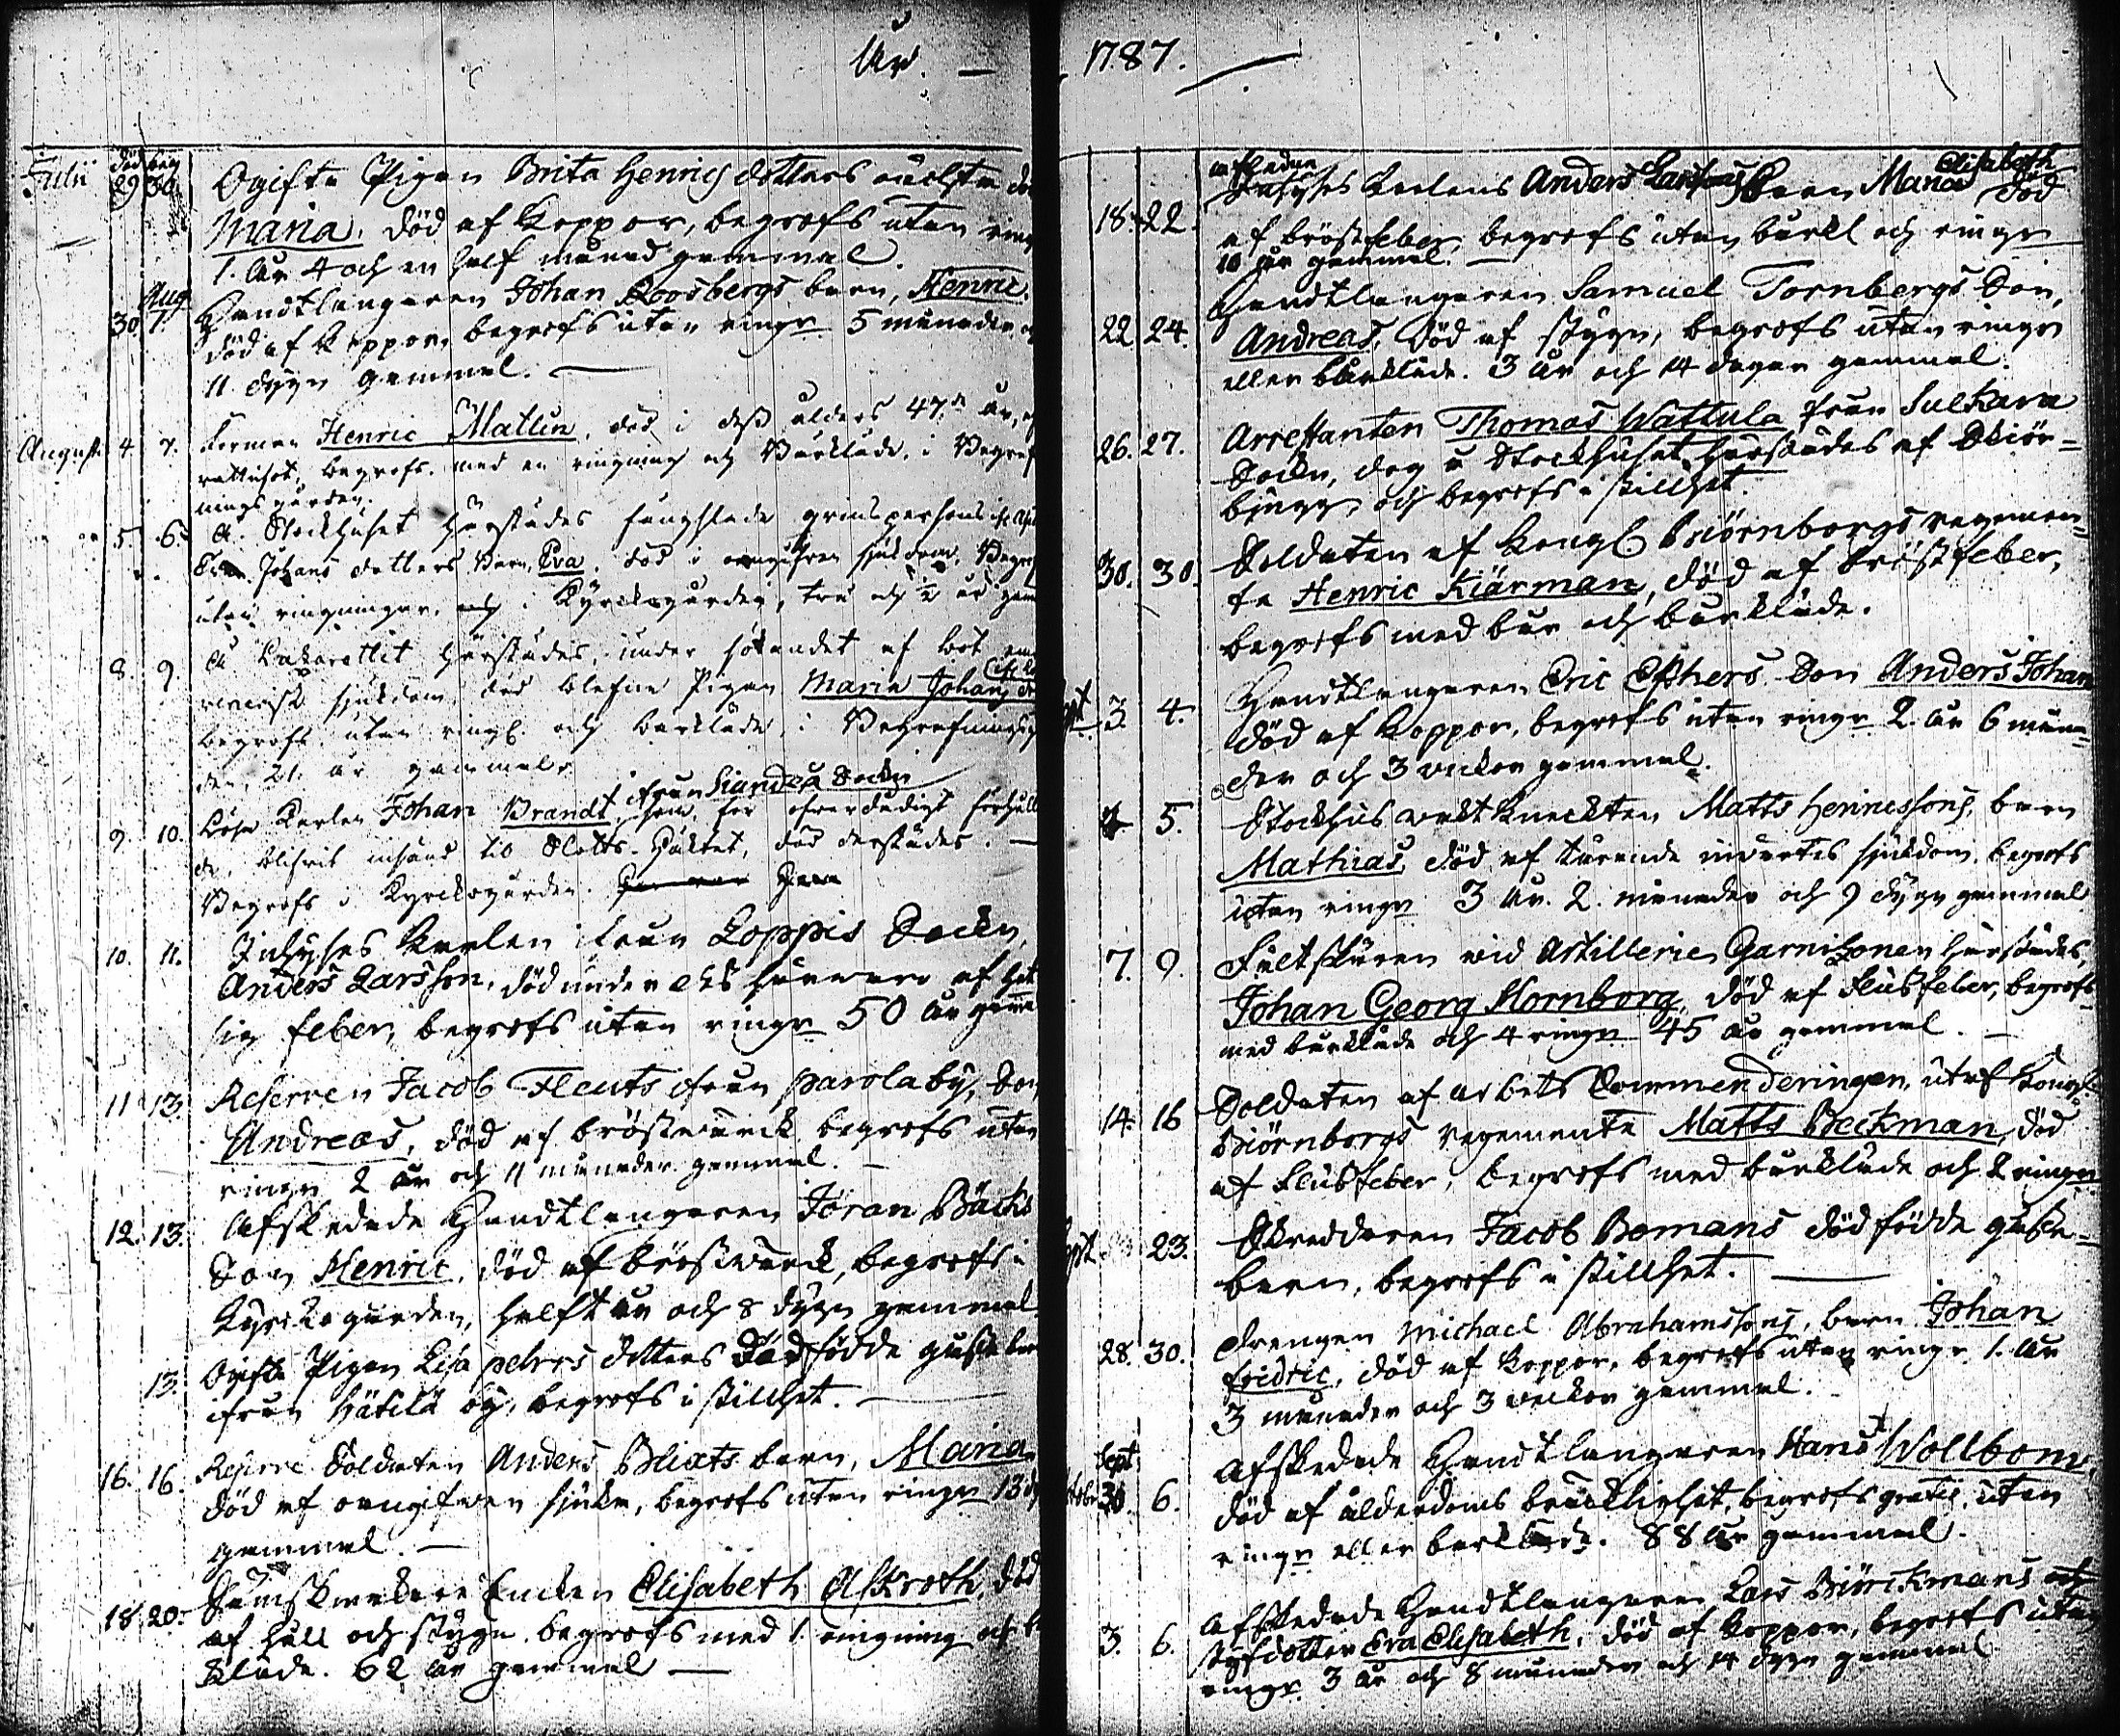 År. — 1787.
Julii
död beg
29 30. Ogifta Pigan Brita Henrics dotters oächta
Maria, död af koppor, begrofs utan ringn
1. år 4 och en half månad gammal.
Aug.
30 1. Handtlangaren Johan Roosbergs barn, Henric.
död af koppor, begrofs utan ringn 5 månader
11. dygn gammal. —
August 4 7. Henric Matlin, död i dess ålders 47.de år,
rattsot, begrofs. med en ringning och Bårkläde, i Begraf
nings gården.
5. 6. Stockhuset härstädes
Johans dotters Barn, Eva, död i oangifven sjukdom, Begrofs
utan ringningar, och i Kyrckogården, tre och ½ år
8. 9. Å Lazarettet härstädes, under
venerisk sjukdom, död blefne Pigan Maria Johans
begrofs utan ringn. och bårkläde, i Begrafningsg
den, 21. år gammal.
ifrån Siundeå Sockn
9. 10. Karlen Johan Brandt som, för
de, blifvit insänd til Slotts-Häktet, död derstädes. —
Begrofs i Kyrckogården.
10. 11. Inhyses Karlen ifrån Loppis Sockn,
Anders Larsson, död under
sig feber, begrofs utan ringn 50 år
11 13. Reserven Jacob Flents ifrån Parola by, Son
Andreas, död af bröstwärck begrofs utan
ringn 2 år och 11 månader gammal. —
12. 13. Afskedade Handtlangaren Jöran Bäcks
Son Henric, död af bröstwärck, begrofs i
Kyrckogården, halft år och 8 dygn gammal
13. Ogifta Pigan Lisa Pehrs dotters dödfödde
ifrån Hätilä by, begrofs i stillhet. —
16. 16. Reserve Soldaten Anders Blixts barn, Maria
död af oangifven sjuka, begrofs utan ringn 13
gammal. —
18 20. Enckan Elisabeth Alkroth, död
af håll och stygn begrofs med 1. ringning och
kläde. 62 år gammal —
afledne Elisabeth
18. 22. Inhyses Karlens Anders Larssons Barn Maria död
af bröstfeber, begrofs utan bårkl och ringn
10 år gammal. —
22 24. Handtlangaren Samuel Tornbergs Son,
Andreas, död af stygn, begrofs utan ringn
eller bårkläde. 3 år och 14 dagar gammal.
26. 27. Arrestanten Thomas Wattula från Sulkava
Sockn, dog å Stockhuset härstädes af Skiör-
bjugg och begrofs i stillhet.
30. 30. Soldaten af Kongl Biörnborgs regemen-
te Henric Kiärman, död af bröstfeber,
begrofs med bår och bårkläde.
3. 4. Handtlangaren Eric Ekhers Son Anders Johan
död af koppor, begrofs utan ringn 2. år 6 måna-
der och 3 veckor gammal.
4 5. Stockhus vakt Knecktens Matts Henricssons, barn
Mathias, död af tärande invärtes sjukdom, begrofs
utan ringn 3 år. 2. månader och 9 dygn gammal
7. 9. Fältskären vid Artillerie Garnizonen härstädes,
Johan Georg Hornborg, död af Flussfeber, begrofs
med bårkläde och 4 ringn 45 år gammal. —
14. 16 Soldaten af arbets Commenderingen, utaf Kongl.
Biörnborgs regemente Matts Beckman, död
af Flussfeber, begrofs med bårkläde och 2 ringn
23. Skreddaren Jacob Bomans dödfödde
barn, begrofs i stillhet. —
28. 30. Drengen Michael Abrahamssons, barn Johan
Fridric, död af koppor, begrofs utan ringn. 1. år
3 månader och 3 veckor gammal. —
Sept
30. 6. Afskedade Handtlangaren Hans Wollbom,
död af ålderdoms bräcklighet, begrofs gratis, utan
ringn eller bårkläde. 88 år gammal.
3. 6. Afskedade Handtlangaren Lars Biörckmans
styfdotter Eva Elisabeth, död af koppor, begrofs utan
ringn. 3 år och 8 månader och 14 dygn gammal